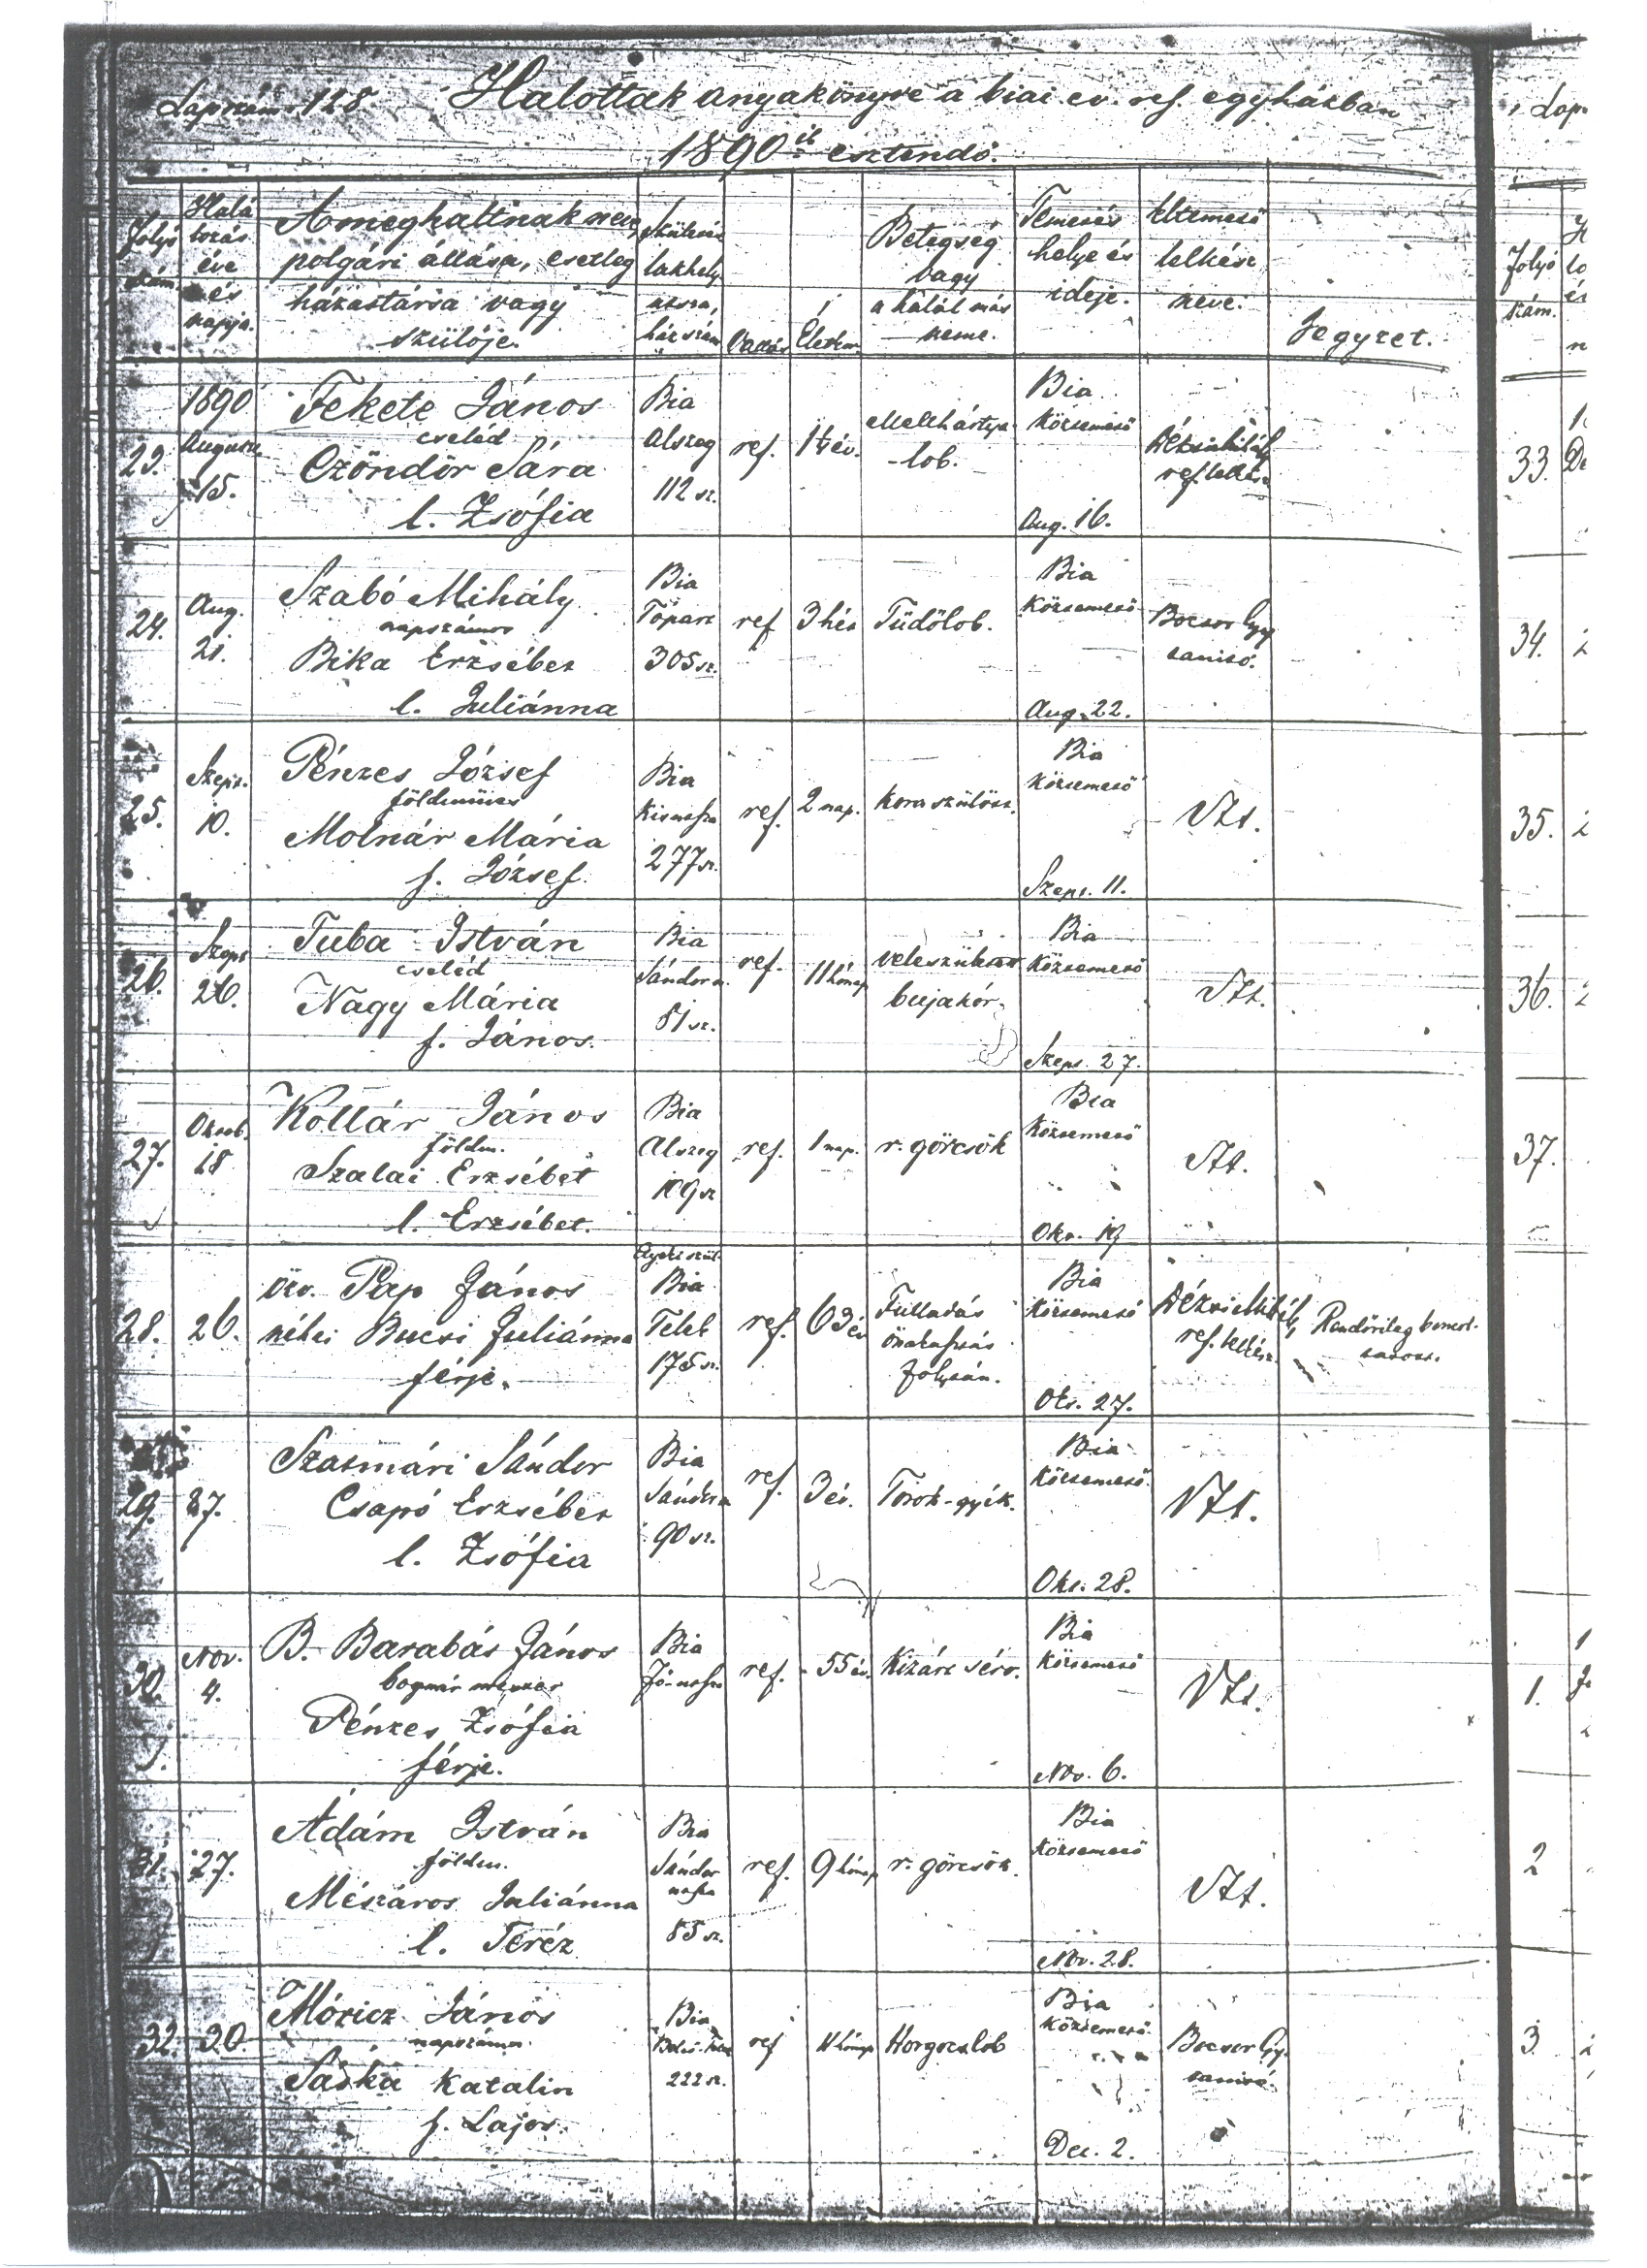 Lapszám 128 Halottak anyakönyve a biai ev. ref. egyházban
1890ik esztendő.
Folyó szám.
Halálozás éve és napja.
A meghaltnak neve,
polgári állása, esetleg
házastársa vagy
szülője.
Születés
lakhely
utsza,
házszám
Vallás
Életkor
Betegség
vagy
a halál más
neme.
Temetés
helye és
ideje.
Eltemető
lelkész
neve.
Jegyzet.
23.
1890
August.
15.
Fekete János
cseléd
Czöndör Sára
l. Zsófia
Bia
Alszeg
112 sz.
ref.
Mellhártya
-lob.
Bia
Köztemető
Aug. 16.
ref. lelkész
24.
Aug.
21.
Szabó Mihály
napszámos
Bika Erzsébet
l. Juliánna
Bia
Tópart
305 sz.
ref
3 hét
Tüdőlob.
Bia
Köztemető
Aug. 22.
Bocsor Gy.
tanító.
25.
Szept.
10.
Pénzes József
földmüves
Molnár Mária
f. József.
Bia
Kisutsza
277 sz.
ref.
2 nap.
Kora szülött.
Bia
Köztemető
Szept. 11.
26.
Szept
26.
Tuba István
cseléd
Nagy Mária
f. János.
Bia
Sándor u.
81 sz.
ref.
11 hónap
veleszületett
bujakór.
Bia
Köztemető
Szept. 27.
27.
Októb.
18
Kollár János
földm.
Szalai Erzsébet
l. Erzsébet.
Bia
Alszeg
109 sz
ref.
1 nap.
r. görcsök
Bia
Köztemető
Okt. 19
28.
26.
özv. Pap János
néhai Bucsi Juliánna
férje.
Bia
Telek
175 sz.
ref.
63 év
Fulladás
önakasztás
folytán.
Bia
Köztemető
Okt. 27.
ref. lelkész.
29.
27.
Szatmári Sándor
Csapó Erzsébet
l. Zsófia
Bia
Sándor u
90 sz.
ref.
3 év.
Torok-gyík.
Bia
Köztemető
Okt. 28.
30.
Nov.
4.
B. Barabás János
bognár mester
Pénzes Zsófia
férje.
Bia
Fő-utsza
ref.
55 év.
Kizárt sérv.
Bia
Köztemető
Nov. 6.
31.
27.
Ádám István
földm.
Mészáros Juliánna
l. Teréz
Bia
Sándor
utsza
85 sz.
ref.
9 hónap
r. görcsök.
Bia
Köztemető
Nov. 28.
32.
30.
Móricz János
napszámos
Sáska Katalin
f. Lajos.
Bia
222 sz.
ref
Horgoczlob
Bia
Köztemető
Dec. 2.
Bocsor Gy.
tanító.
Folyó
szám.
33.
34.
35.
36.
37.
1.
2
3